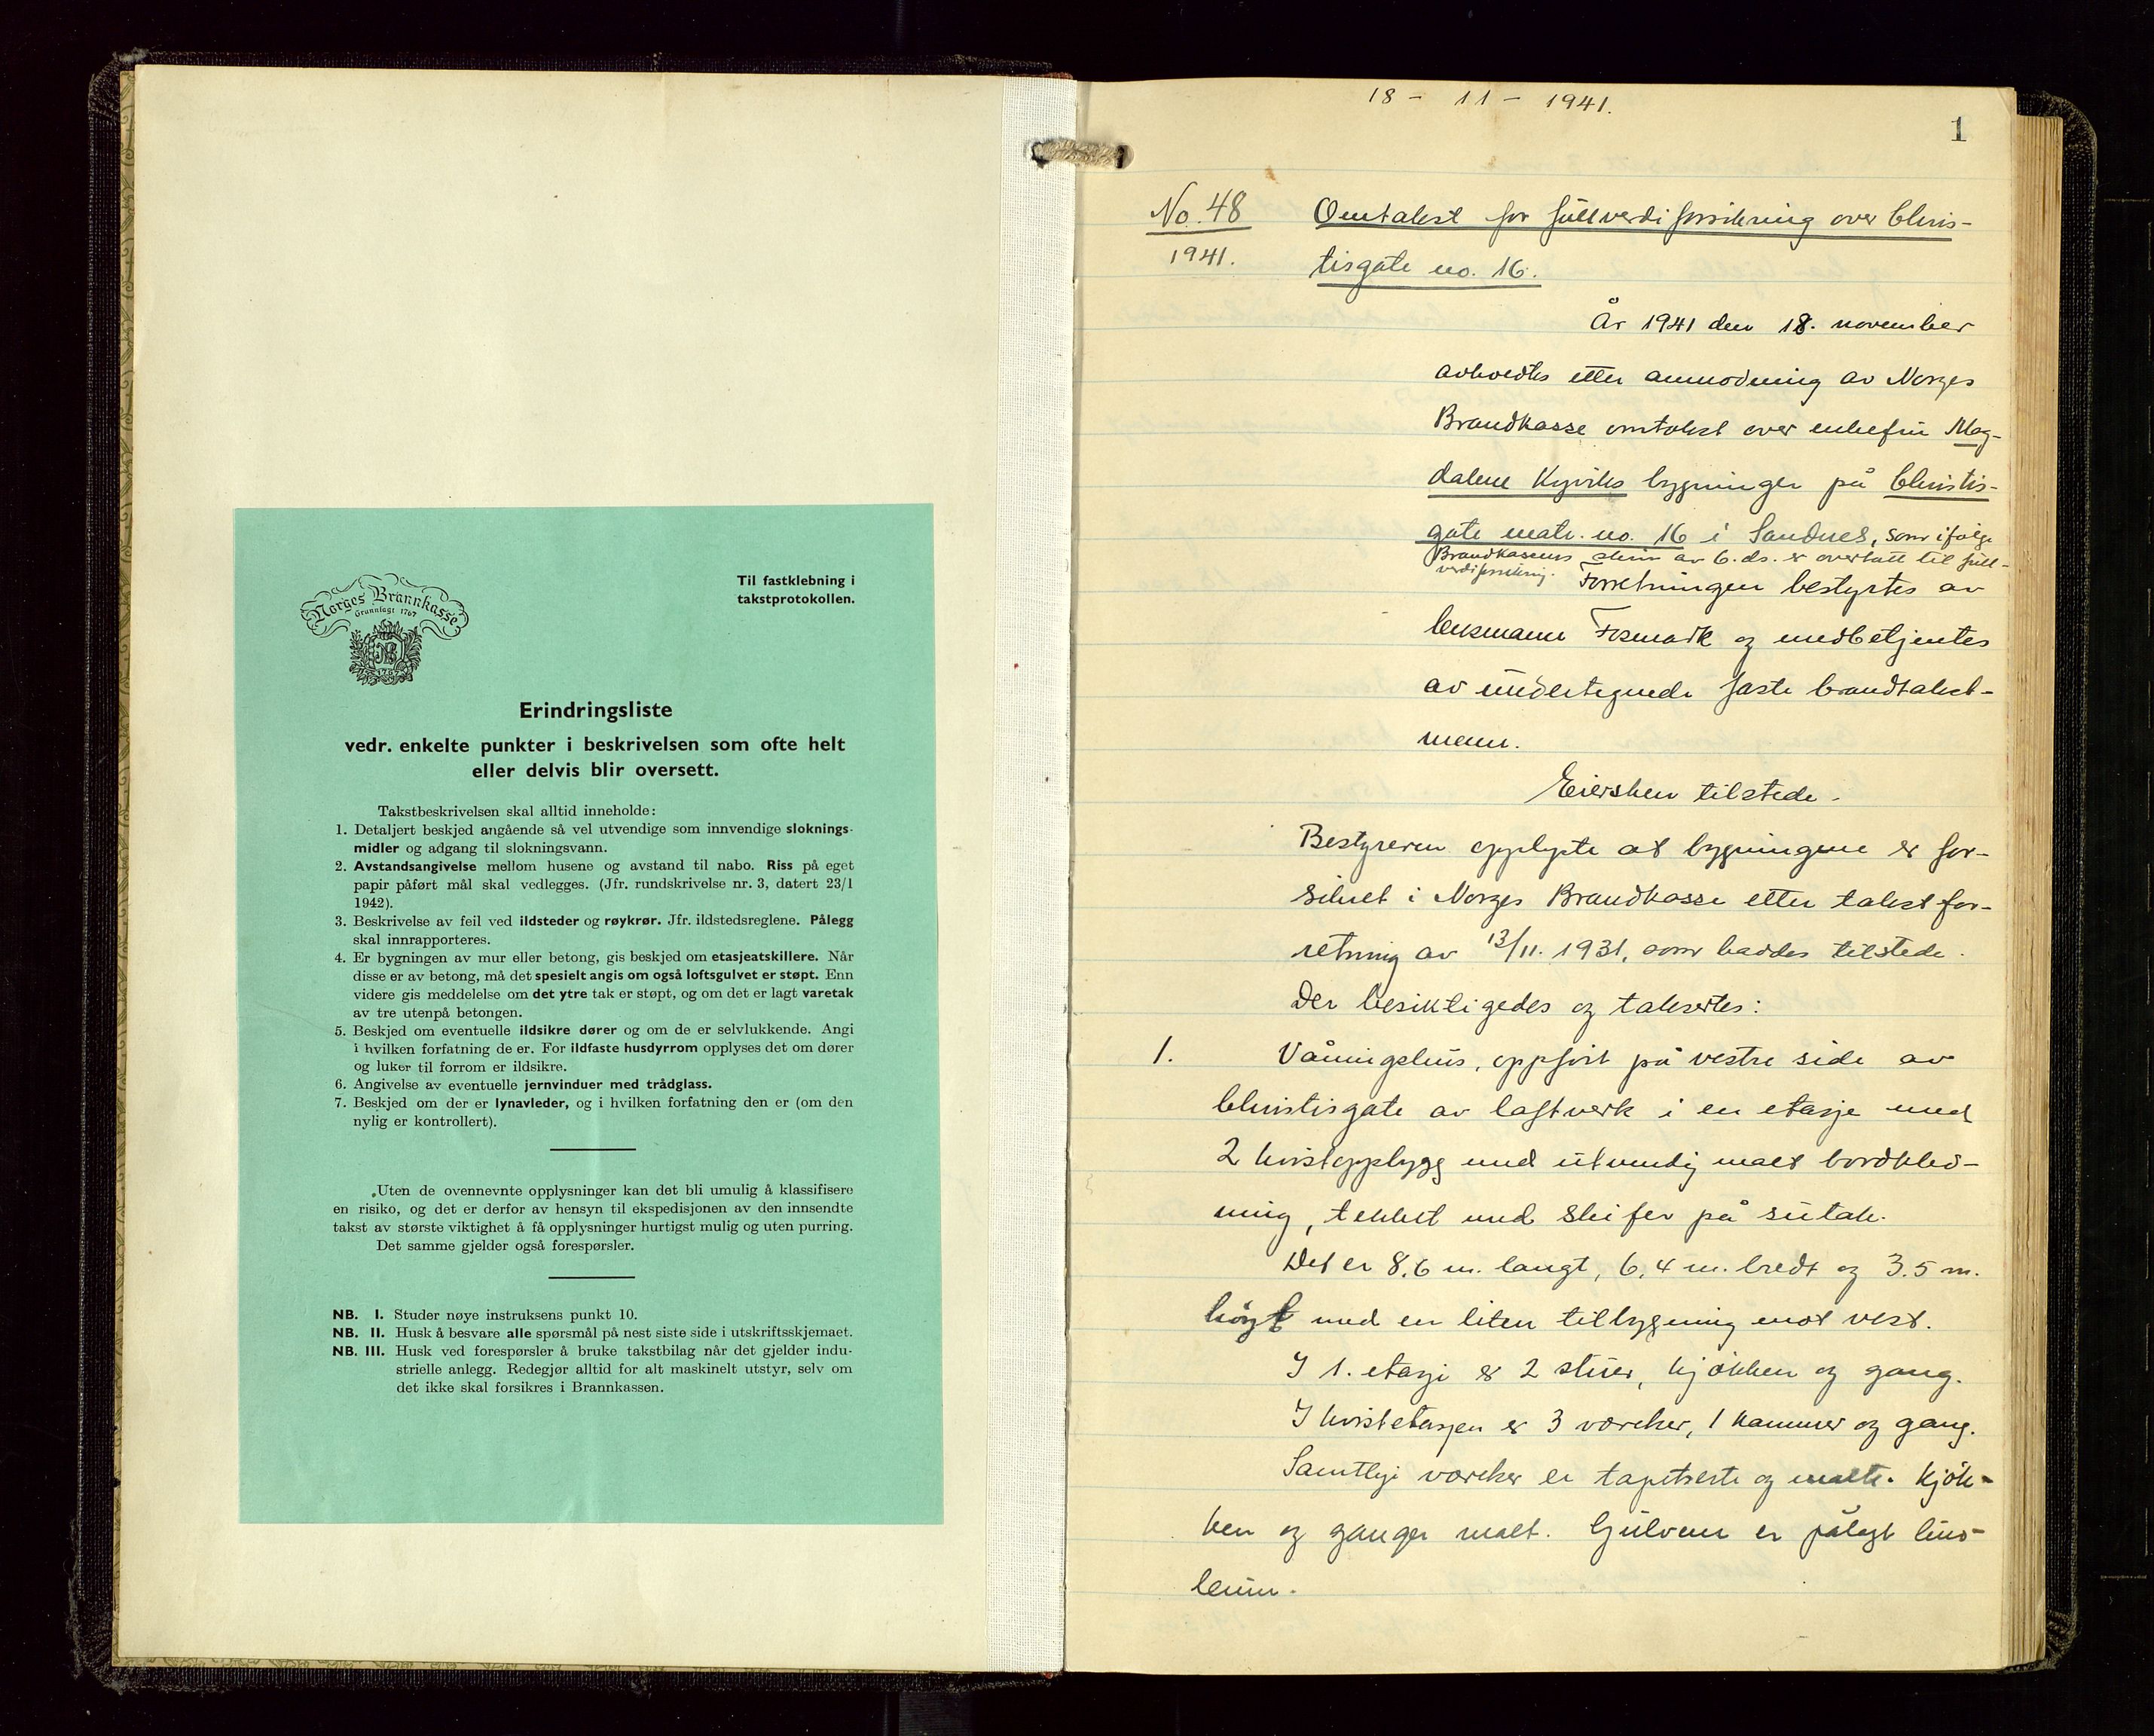 Norges Brannkasse
Grunnlagt 1767
Til fastklebning i
takstprotokollen.
Erindringsliste
vedr. enkelte punkter i beskrivelsen som ofte helt
eller delvis blir oversett.
Takstbeskrivelsen skal alltid inneholde:
1. Detaljert beskjed angående så vel utvendige som innvendige sloknings-
midler og adgang til slokningsvann.
2. Avstandsangivelse mellom husene og avstand til nabo. Riss på eget
papir påført mål skal vedlegges. (Jfr. rundskrivelse nr. 3, datert 23/1
1942).
3. Beskrivelse av feil ved ildsteder og røykrør. Jfr. ildstedsreglene. Pålegg
skal innrapporteres.
4. Er bygningen av mur eller betong, gis beskjed om etasjeatskillere. Når
disse er av betong, må det spesielt angis om også loftsgulvet er støpt. Enn
videre gis meddelelse om det ytre tak er støpt, og om det er lagt varetak
av tre utenpå betongen.
5. Beskjed om eventuelle ildsikre dører og om de er selvlukkende. Angi
i hvilken forfatning de er. For ildfaste husdyrrom opplyses det om dører
og luker til forrom er ildsikre.
6. Angivelse av eventuelle jernvinduer med trådglass.
7. Beskjed om der er lynavleder, og i hvilken forfatning den er (om den
nylig er kontrollert).
Uten de ovennevnte opplysninger kan det bli umulig å klassifisere
en risiko, og det er derfor av hensyn til ekspedisjonen av den innsendte
takst av største viktighet å få opplysninger hurtigst mulig og uten purring.
Det samme gjelder også forespørsler.
NB. I. Studer nøye instruksens punkt 10.
NB. II. Husk å besvare alle spørsmål på nest siste side i utskriftsskjemaet.
NB. III. Husk ved forespørsler å bruke takstbilag når det gjelder indu-
strielle anlegg. Redegjør alltid for alt maskinelt utstyr, selv om
det ikke skal forsikres i Brannkassen.
18 - 11 - 1941.
1
No. 48
1941.
Omtakst for fullverdiforsikring over Chris-
tisgate no. 16.
År 1941 den 18. november
avholdtes etter anmodning av Norges
Brandkasse omtakst over enkefru Mag-
dalene Kyviks bygninger på Christis-
gate matr. no. 16 i Sandnes, som ifølge
Brandkassens skriv av 6. ds. er overtatt til full-
verdiforsikring. Forretningen bestyrtes av
lensmann Fosmark og medbetjentes
av undertegnede faste brandtakst-
menn.
Eiersken tilstede.
Bestyreren opplyste at bygningene er for-
sikret i Norges Brandkasse etter takstfor-
retning av 13/11. 1931, som haddes tilstede.
Der besiktigedes og taksertes:
1. Våningshus, oppført på vestre side av
Christisgate av laftverk i en etasje med
2 kvistoppbygg med utvendig malt bordkled-
ning, tekket med skifer på sutak.
Det er 8.6 m. langt, 6,4 m. bredt og 3.5 m.
høgt med en liten tilbygning mot vest.
I 1. etasje er 2 stuer, kjøkken og gang.
I kvistetasjen er 3 værelser, 1 kammer og gang.
Samtlige værelser er tapetserte og malte. Kjøk-
ken og ganger malt. Gulvene er pålagt lino-
leum.